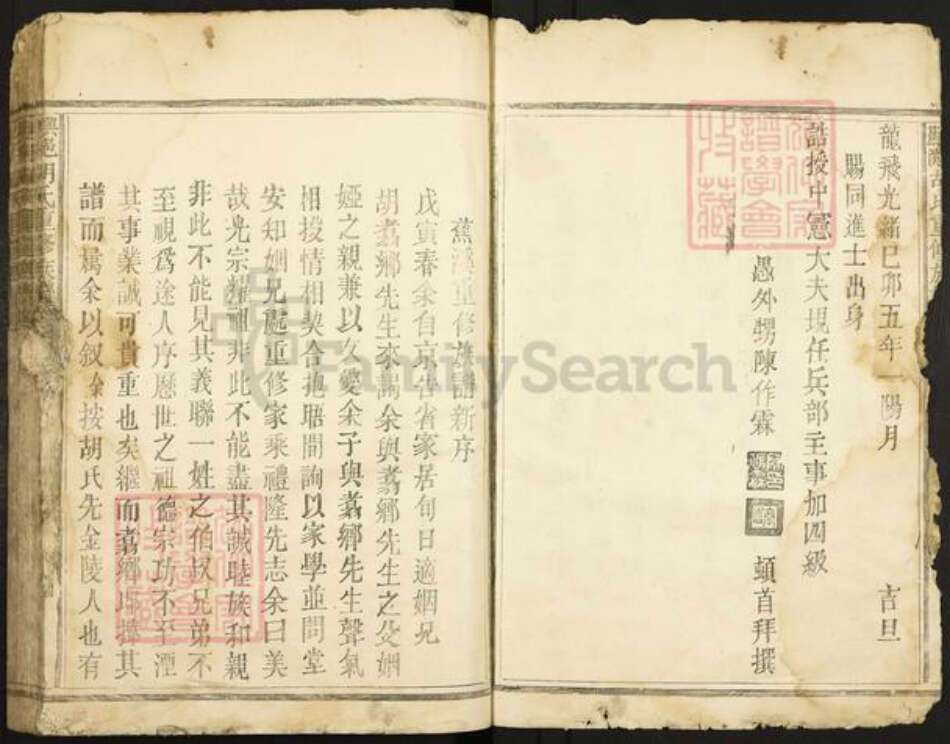 龍飛光緒己卯五年一陽月 吉旦
賜同進士出身
誥授中憲大夫現任兵部主事加四級
愚外甥陳作霖 頓首拜撰
蕉溪重修族譜新序
戊寅春余自京告省家居旬日適姻兄
胡翥鄉先生來謁余與翥鄉先生之父姻
婭之親兼以久愛余子與翥鄉先生聲氣
相投情相契合抱晤間詢以家學並問堂
安知姻兄處重修家乘禮隆先志余曰美
哉光宗耀祖非此不能盡其誠睦族和親
非此不能見其義聯一姓之伯叔兄弟不
至視為途人序歷世之祖德宗功不至湮
其事業誠可貴重也矣繼而翥鄉 其
譜而屬余以叙余按胡氏先金陵人也有
興邑胡氏重修族
FamilySearch